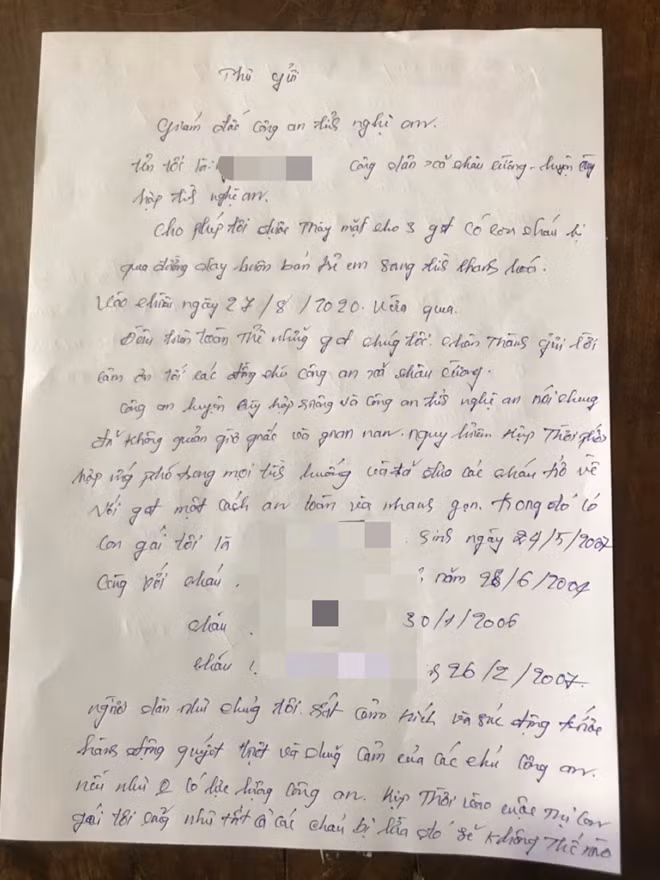 Thư gửi
Giám đốc công an tỉnh nghệ an.
tên tôi là: công dân xã châu cường - huyện quỳ
hợp tỉnh nghệ an.
cho phép tôi được thay mặt cho 3 gđ có con cháu bị
qua đường dây buôn bán trẻ em sang tỉnh thanh hoá.
Vào chiều ngày 27/8/2020. vừa qua.
Đầu tiên toàn thể những gđ chúng tôi. chân thành gửi lời
cảm ơn tới các đồng chí công an xã châu cường.
công an huyện quỳ hợp và công an tỉnh nghệ an nói chung
đã không quản giờ giấc và gian nan. nguy hiểm kịp thời phối
hợp ứng phó trong mọi tình huống và đã đưa các cháu trở về
với gđ một cách an toàn và nhanh gọn. trong đó có
con gái tôi là sinh ngày 24/5/2007
cùng với cháu. năm 28/6/2007
cháu. 30/1/2006
cháu 26/2/2007.
người dân như chúng tôi. rất cảm kích và xúc động trước
hành động quyết liệt và dũng cảm của các chú công an.
nếu như 0 có lực lượng công an. kịp thời vào cuộc thì con
gái tôi cũng như tất cả các cháu bị lừa đó sẽ không thể nào